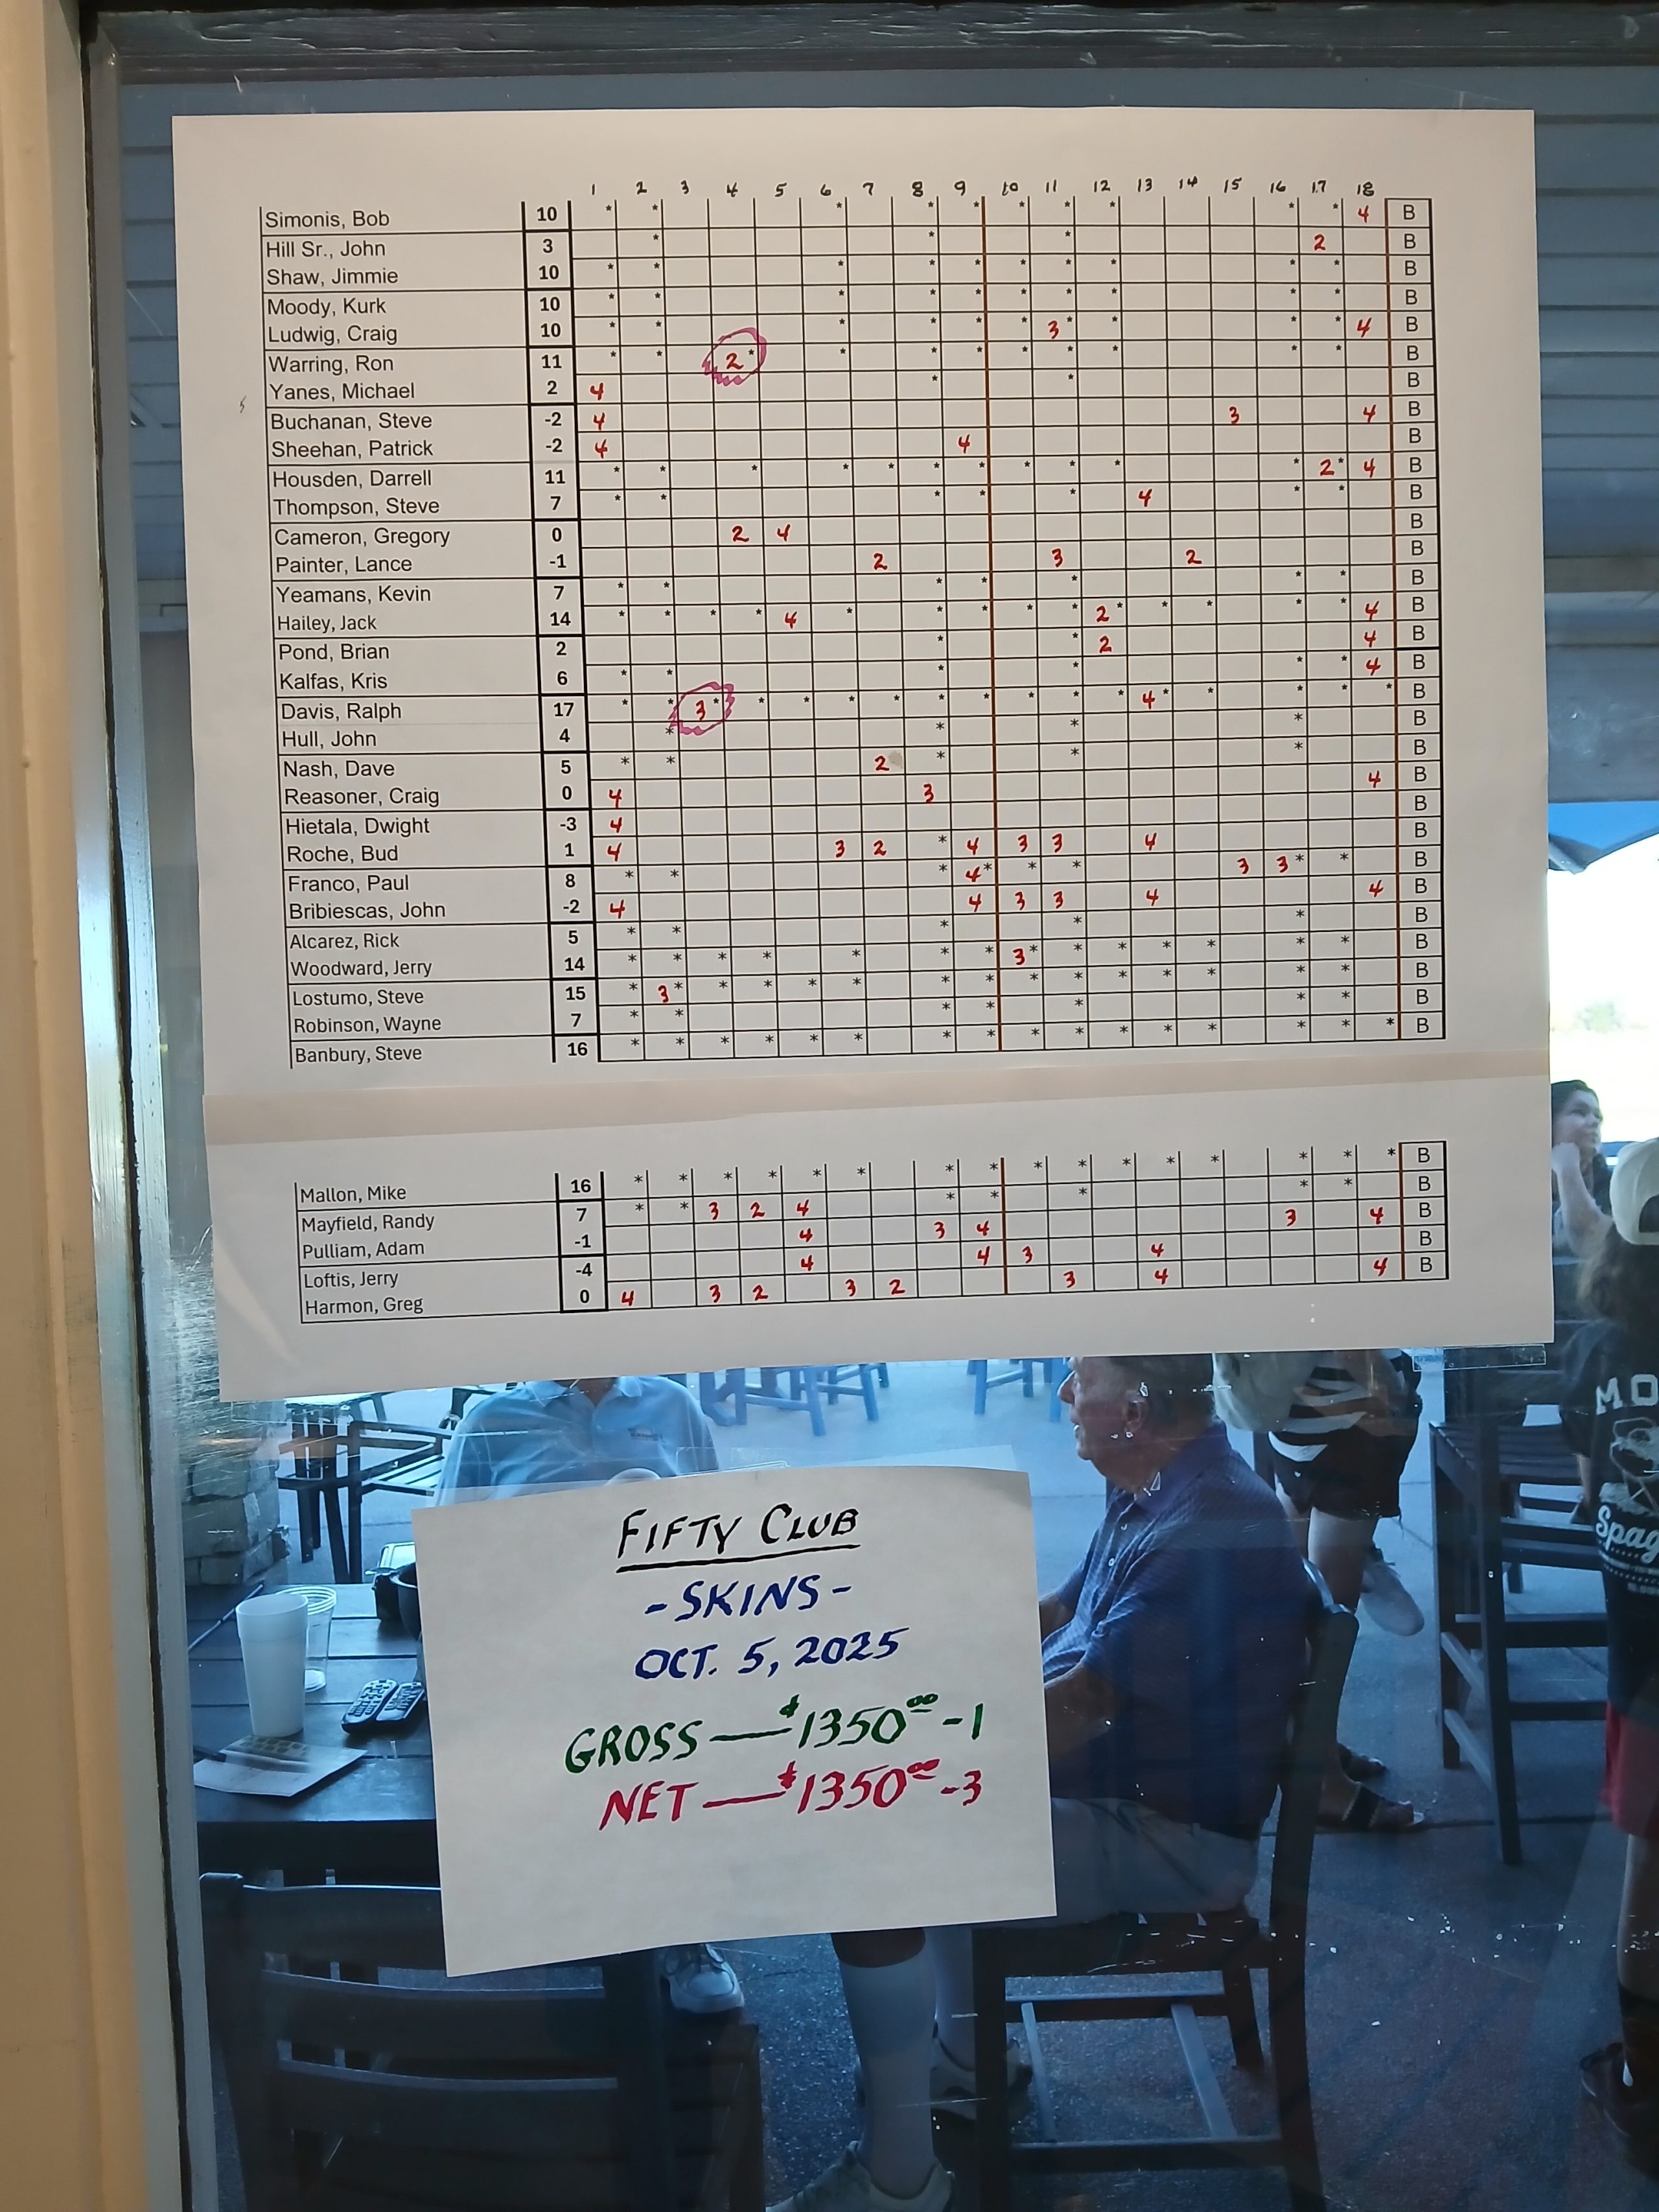 1 2 3 4 5 6 7 8 9 10 11 12 13 14 15 16 17 18
Simonis, Bob 10 * * * * * * * * * * 4 B
Hill Sr., John 3 * * * 2 B
Shaw, Jimmie 10 * * * * * * * * * * B
Moody, Kurk 10 * * * * * * * * * * B
Ludwig, Craig 10 * * * * * * 3* * * * 4 B
Warring, Ron 11 * * 2* * * * * * * * * B
Yanes, Michael 2 4 * * B
Buchanan, Steve -2 4 3 4 B
Sheehan, Patrick -2 4 4 B
Housden, Darrell 11 * * * * * * * * * * * 2* 4 B
Thompson, Steve 7 * * * * * 4 * * B
Cameron, Gregory 0 2 4 B
Painter, Lance -1 2 3 2 B
Yeamans, Kevin 7 * * * * * * * B
Hailey, Jack 14 * * * * 4 * * * * * 2* * * * * 4 B
Pond, Brian 2 * * 2 4 B
Kalfas, Kris 6 * * * * * * 4 B
Davis, Ralph 17 * * 3* * * * * * * * * * 4* * * * * B
Hull, John 4 * * * * B
Nash, Dave 5 * * 2 * * * B
Reasoner, Craig 0 4 3 4 B
Hietala, Dwight -3 4 B
Roche, Bud 1 4 3 2 * 4 3 3 4 B
Franco, Paul 8 * * * 4* * * 3 3* * B
Bribiescas, John -2 4 4 3 3 4 4 B
Alcarez, Rick 5 * * * * * B
Woodward, Jerry 14 * * * * * * * 3* * * * * * * B
Lostumo, Steve 15 * 3* * * * * * * * * * * * * * B
Robinson, Wayne 7 * * * * * * * B
Banbury, Steve 16 * * * * * * * * * * * * * * * * B
Mallon, Mike 16 * * * * * * * * * * * * * * * * B
Mayfield, Randy 7 * * 3 2 4 * * * * * B
Pulliam, Adam -1 4 3 4 3 4 B
Loftis, Jerry -4 4 4 3 4 B
Harmon, Greg 0 4 3 2 3 2 3 4 4 B
FIFTY CLUB
- SKINS -
OCT. 5, 2025
GROSS — $1350.00 - 1
NET — $1350.00 - 3
MO
Spag